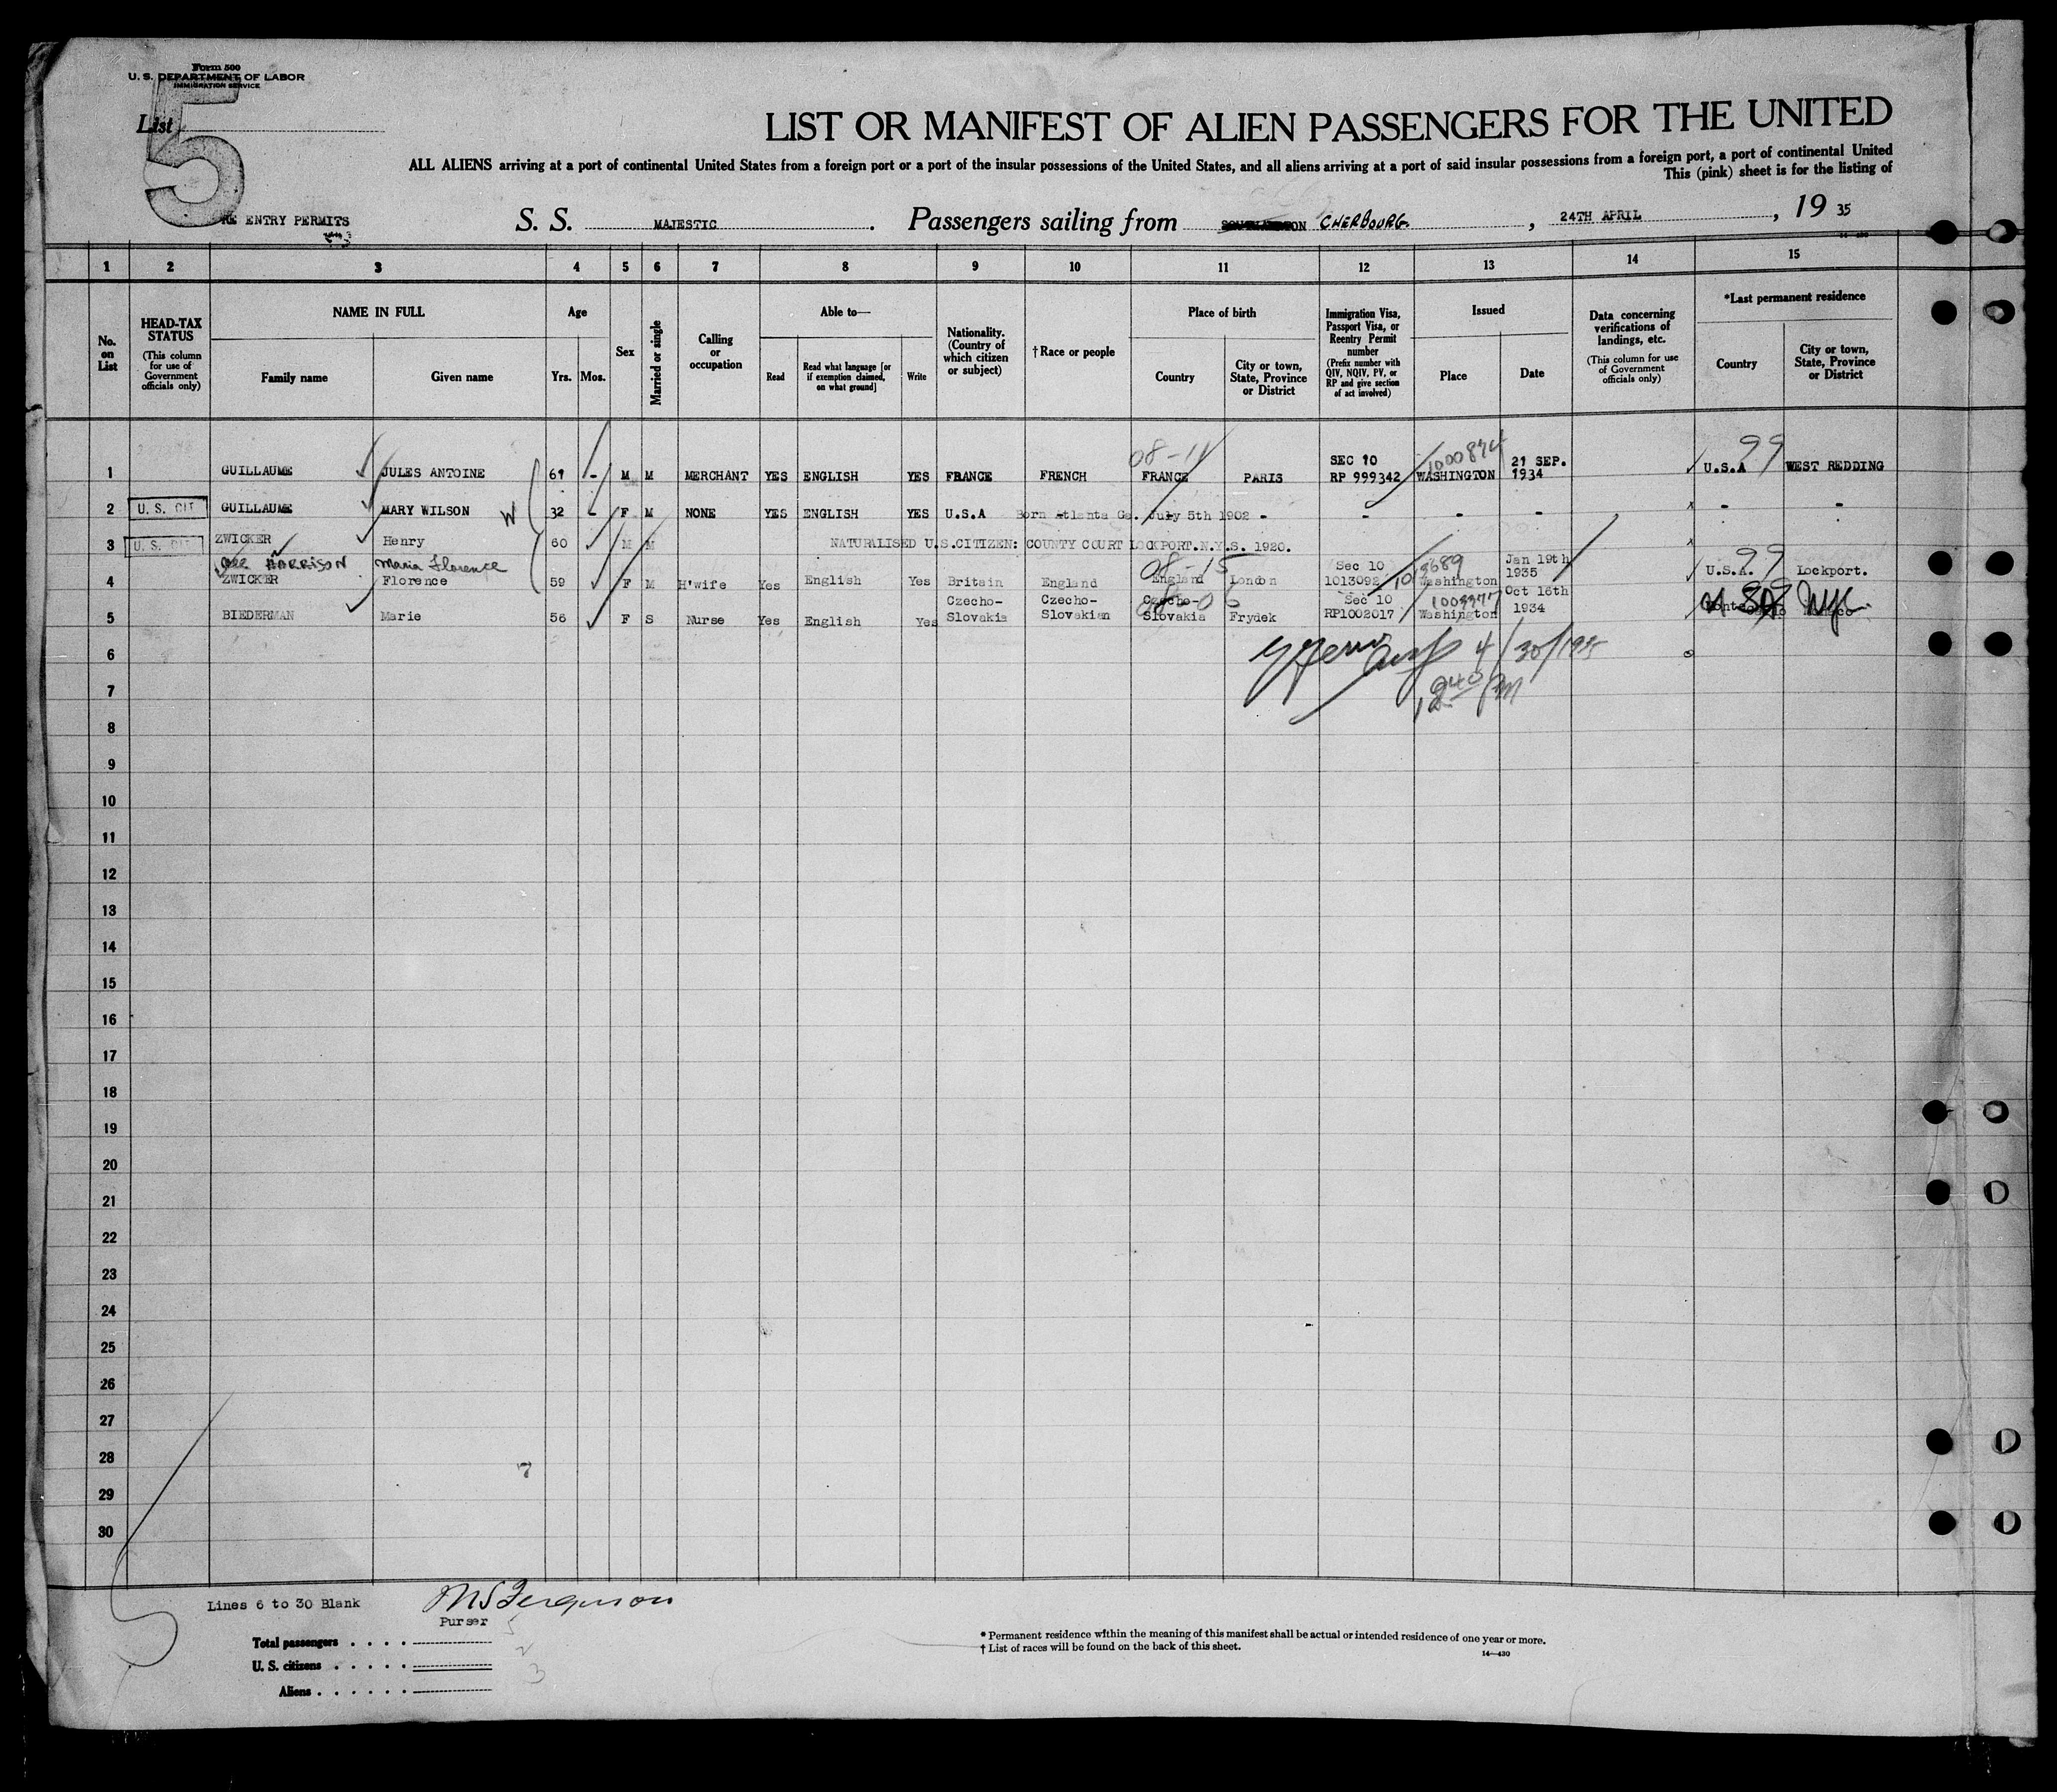 Form 500
U. S. DEPARTMENT OF LABOR
IMMIGRATION SERVICE
List
5
LIST OR MANIFEST OF ALIEN PASSENGERS FOR THE UNITED
ALL ALIENS arriving at a port of continental United States from a foreign port or a port of the insular possessions of the United States, and all aliens arriving at a port of said insular possessions from a foreign port, a port of continental United
This (pink) sheet is for the listing of
RE ENTRY PERMITS
S. S. MAJESTIC. Passengers sailing from CHERBOURG. , 24TH APRIL , 19 35
1 2 3 4 5 6 7 8 9 10 11 12 13 14 15
No. on List
HEAD-TAX STATUS (This column for use of Government officials only)
NAME IN FULL
Family name Given name
Age
Yrs. Mos.
Sex
Married or single
Calling or occupation
Able to—
Read Read what language [or if exemption claimed, on what ground] Write
Nationality. (Country of which citizen or subject)
†Race or people
Place of birth
Country City or town, State, Province or District
Immigration Visa, Passport Visa, or Reentry Permit number (Prefix number with QIV, NQIV, PV, or RP and give section of act involved)
Issued
Place Date
Data concerning verifications of landings, etc. (This column for use of Government officials only)
*Last permanent residence
Country City or town, State, Province or District
08-11 1000874 99
1 GUILLAUME JULES ANTOINE 61 - M M MERCHANT YES ENGLISH YES FRANCE FRENCH FRANCE PARIS SEC 10 RP 999342 WASHINGTON 21 SEP. 1934 U.S.A WEST REDDING
2 U. S. CIT GUILLAUME MARY WILSON W 32 - F M NONE YES ENGLISH YES U.S.A Born Atlanta Ga. July 5th 1902 - - - - - -
3 U. S. CIT ZWICKER Henry 60 M M NATURALISED U.S.CITIZEN: COUNTY COURT LOCKPORT.N.Y.S. 1920.
HARRISON Maria Florence 08-15 99
4 ZWICKER Florence 59 F M H'wife Yes English Yes Britain England England London Sec 10 1013092 Washington Jan 19th 1935 U.S.A. Lockport.
5 BIEDERMAN Marie 56 F S Nurse Yes English Yes Czecho-Slovakia Czecho-Slovakian Czecho-Slovakia Frydek Sec 10 RP1002017 Washington Oct 16th 1934 NYC
6 4/30/1935
7 12 40 PM
8
9
10
11
12
13
14
15
16
17
18
19
20
21
22
23
24
25
26
27
28
29
30
Lines 6 to 30 Blank
Purser
Total passengers . . . . 5
U. S. citizens . . . . . 2
Aliens . . . . . . 3
* Permanent residence within the meaning of this manifest shall be actual or intended residence of one year or more.
† List of races will be found on the back of this sheet.
14—430